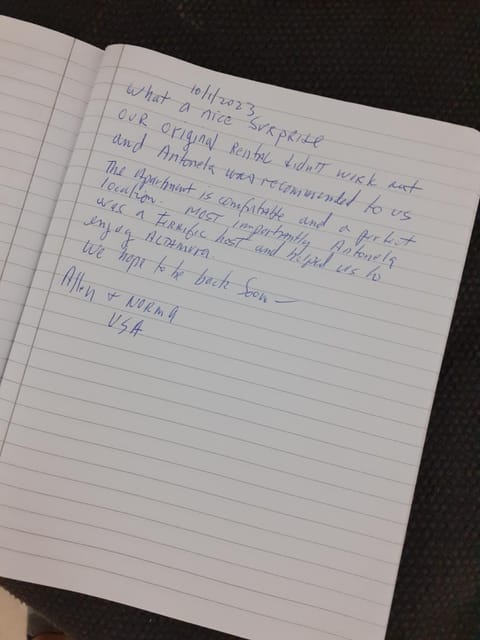 10/1/2023
What a nice surprise
Our original rental didn't work out
and Antonela was recommended to us
The apartment is comfortable and a perfect
location. Most importantly Antonela
was a terrific host and helped us to
enjoy Altamura.
We hope to be back soon —
Allen + Norma
USA